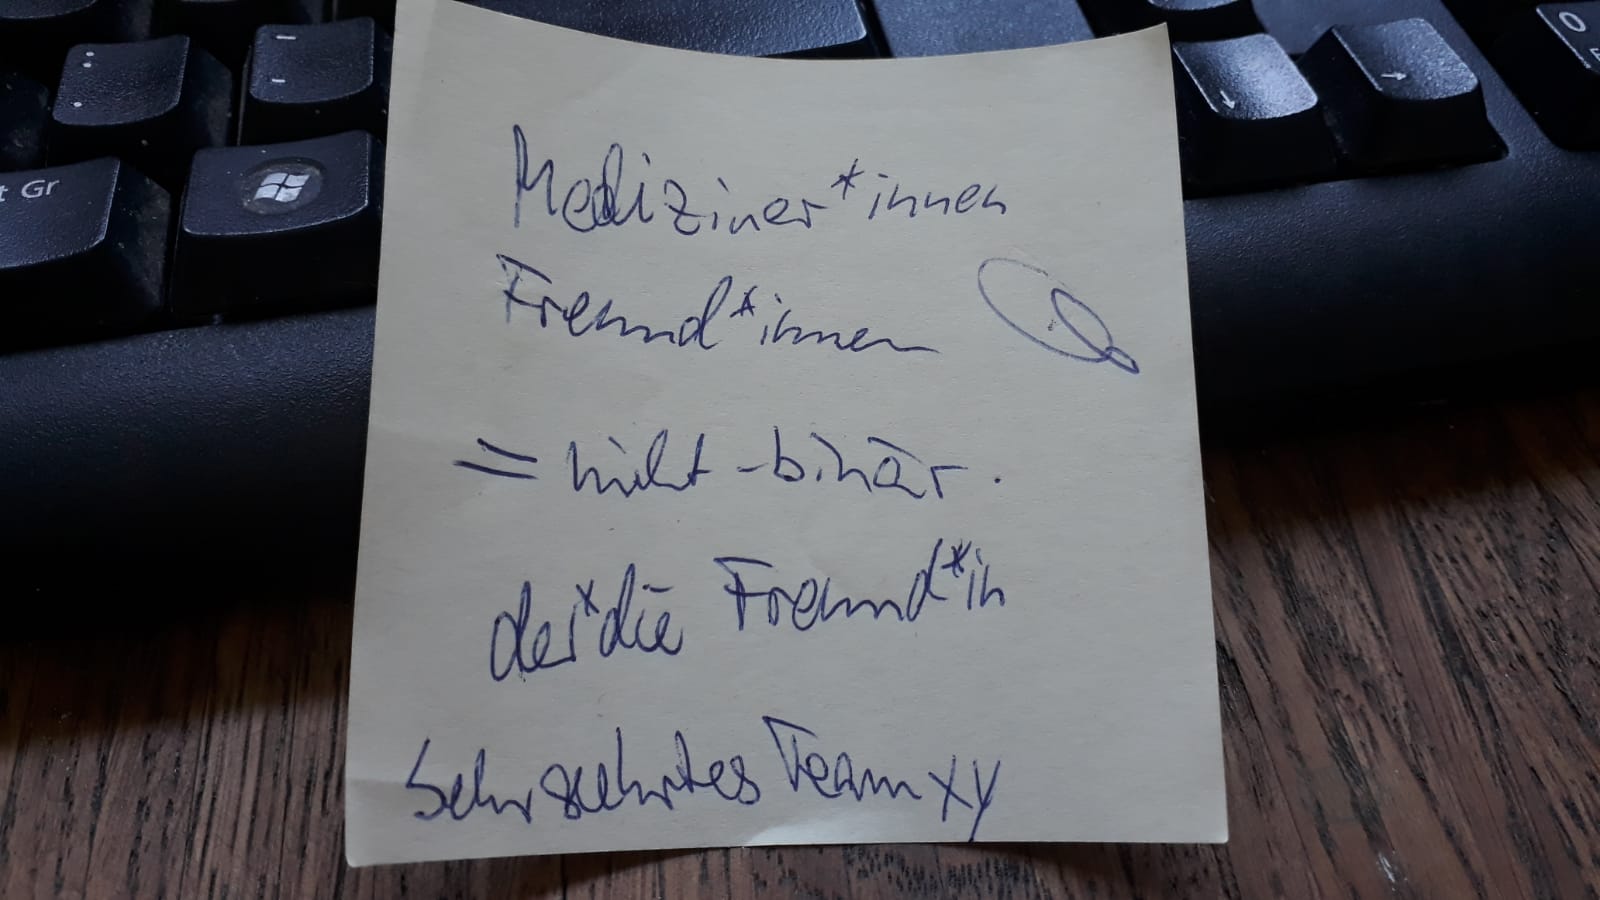 t Gr
0
Mediziner*innen
Freund*innen
= nicht-binär.
der*die Freund*in
Sehr geehrtes Team xy